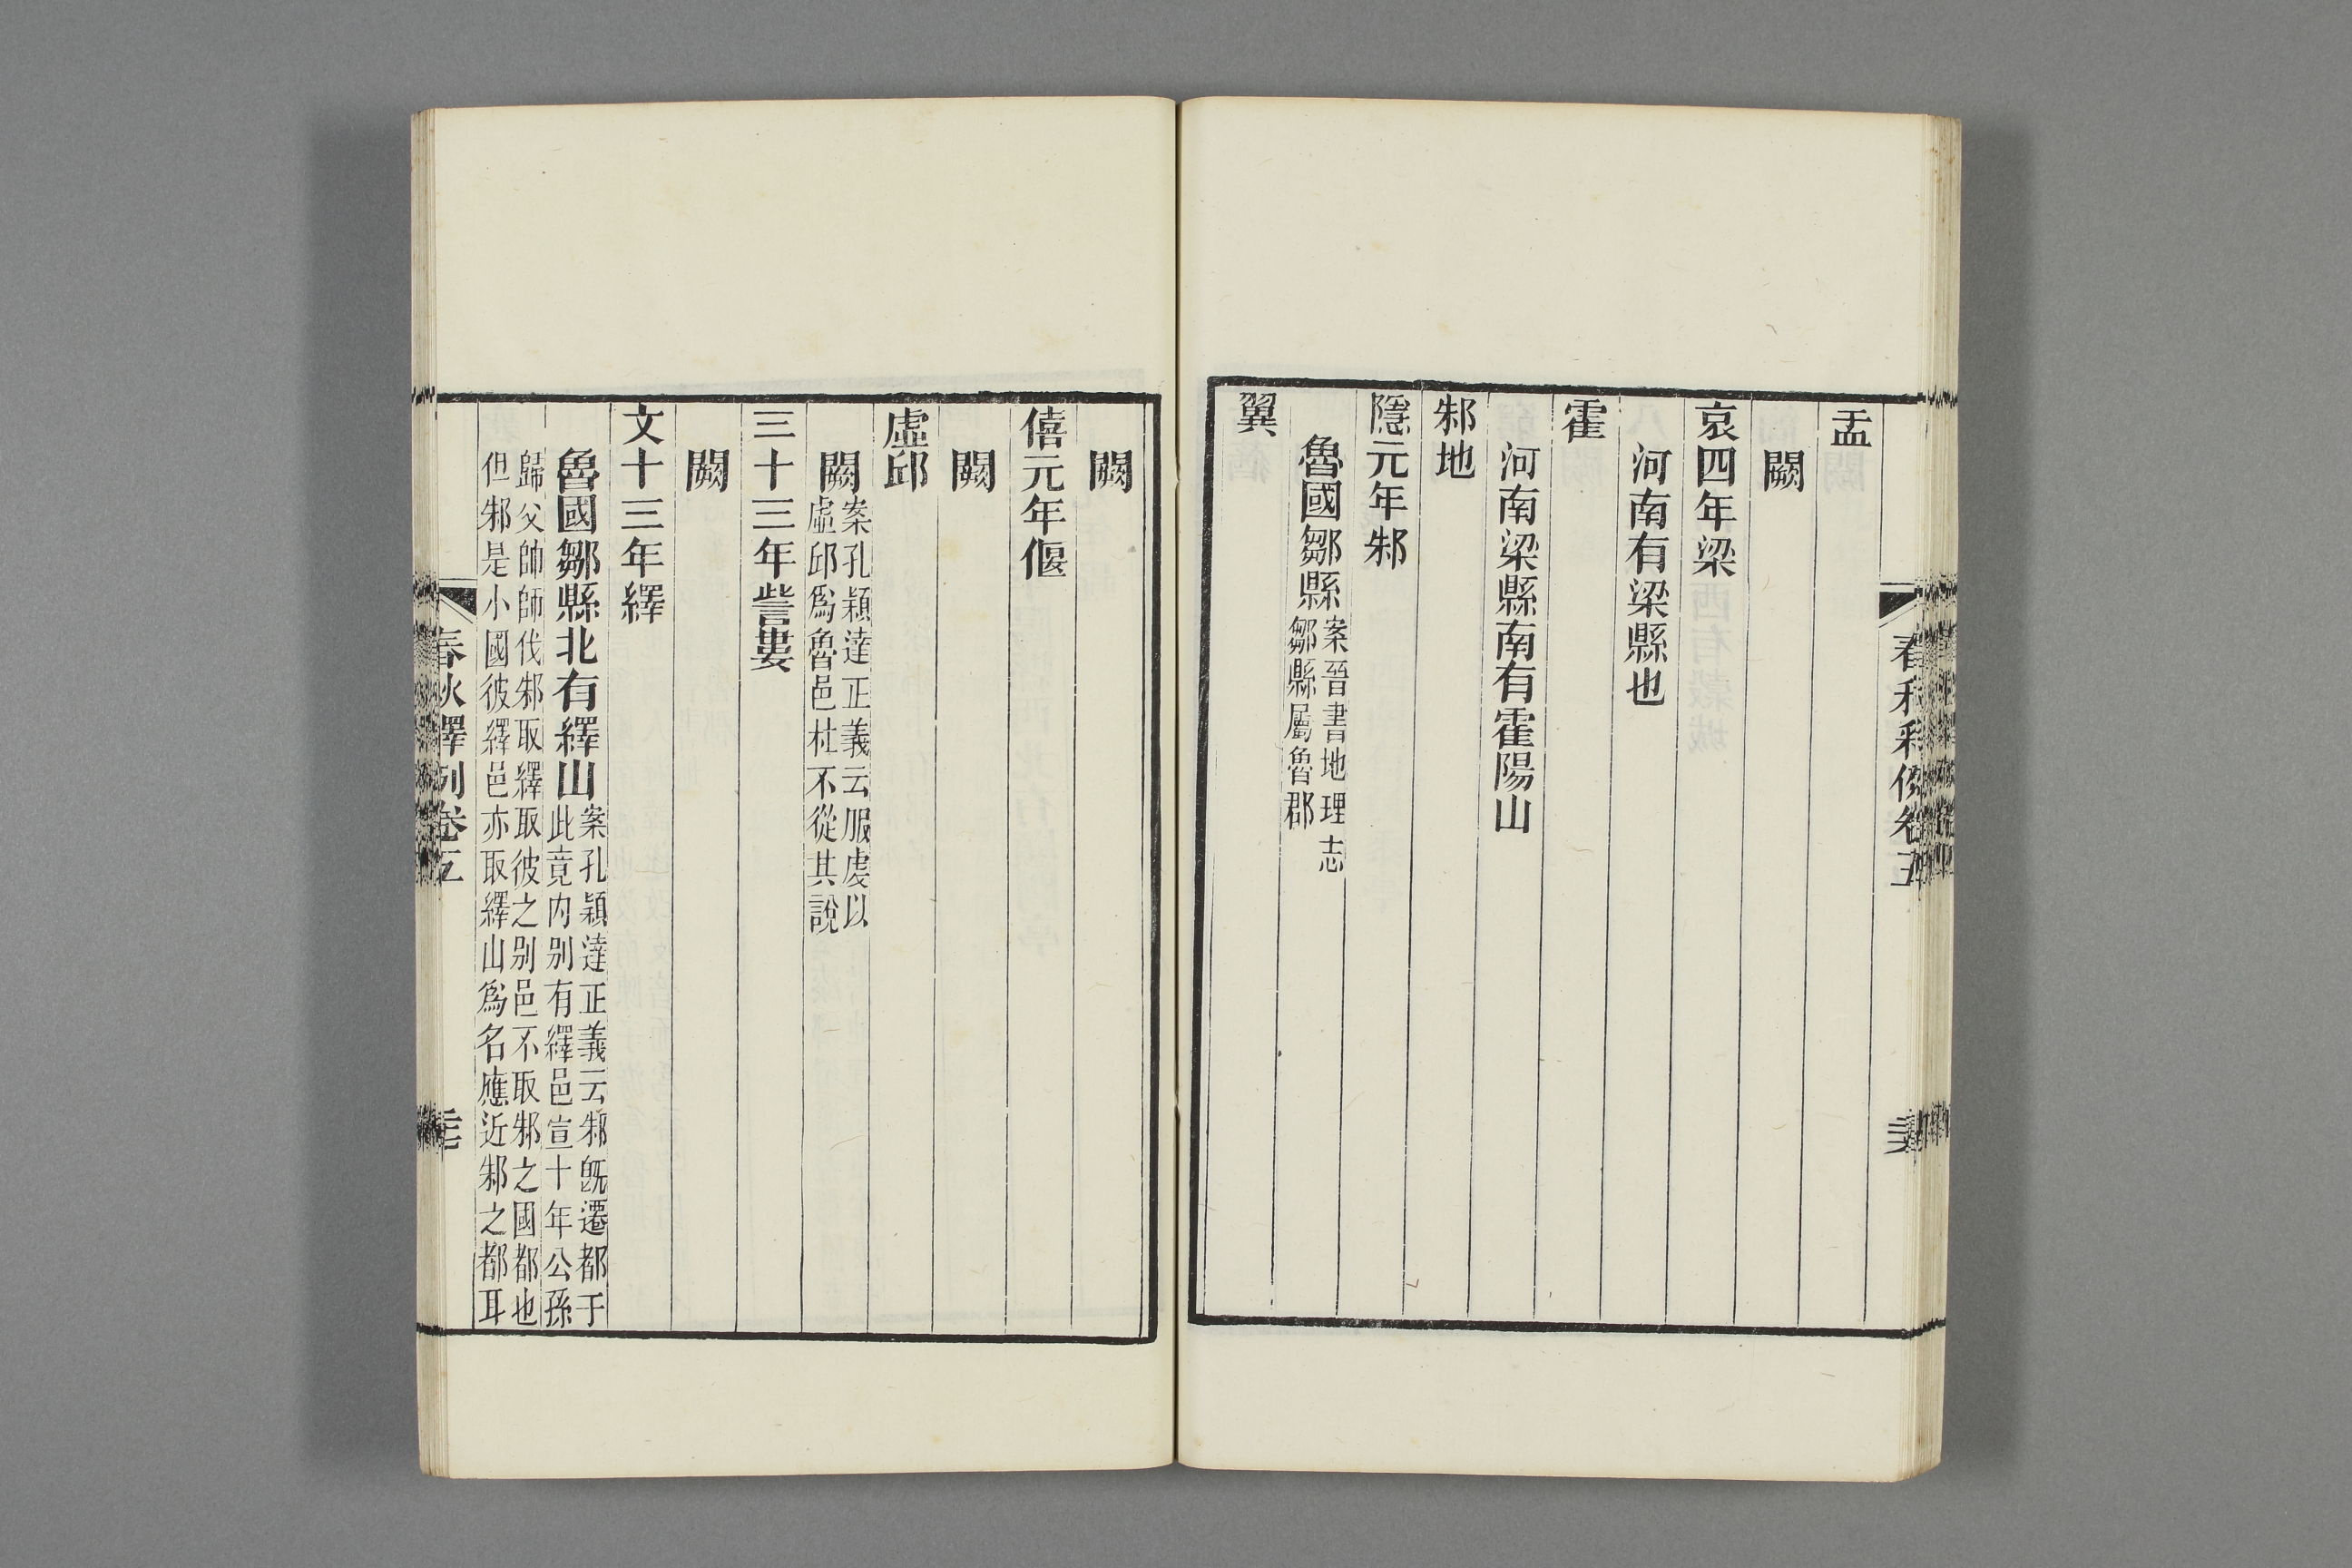 盂
闕
哀四年梁
河南有梁縣也
霍
河南梁縣南有霍陽山
邾地
隱元年邾
魯國鄒縣案晉書地理志
鄒縣屬魯郡
翼
闕
僖元年偃
闕
虛邱
闕案孔穎達正義云服虔以
虛邱爲魯邑杜不從其說
三十三年訾婁
闕
文十三年繹
魯國鄒縣北有繹山案孔穎達正義云邾旣遷都于
此竟內別有繹邑宣十年公孫
歸父帥師伐邾取繹取彼之別邑不取邾之國都也
但邾是小國彼繹邑亦取繹山爲名應近邾之都耳
春秋釋例卷五